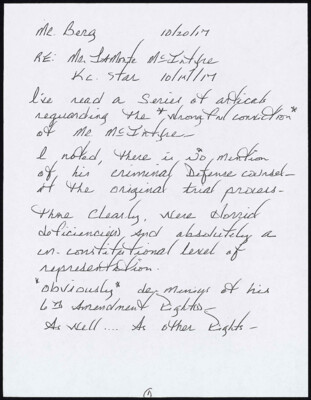 Mr. Berg 10/20/17
RE: Mr. LaMonte McIntyre
K.C. Star 10/14/17
I've read a series of articals
reguarding the "wrongful conviction"
of Mr McIntyre—
I noted, there is NO mention
of his criminal defense counsel—
at the original trial process—
There clearly, were
deficiencies, and absolutely a
un-constitutional level of
representation.
"obviously" de-
of his
6th Amendment Rights,
As well.... As other Rights—
①